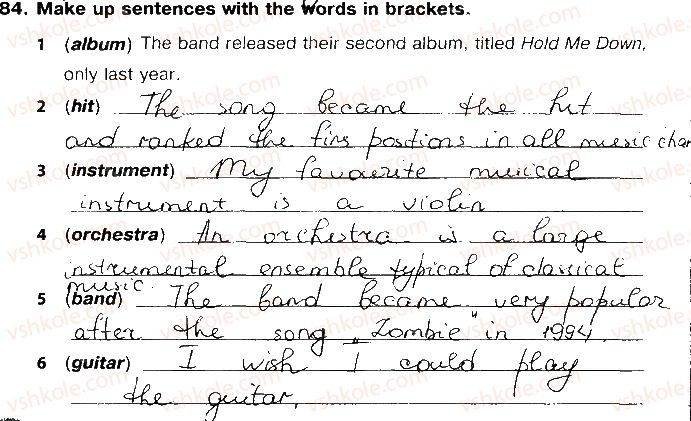 84. Make up sentences with the words in brackets.
1 (album) The band released their second album, titled Hold Me Down,
only last year.
2 (hit) The song became the hit
and ranked the firs positions in all music char
3 (instrument) My favourite musical
instrument is a violin
4 (orchestra) An orchestra is a large
instrumental ensemble typical of classical
music.
5 (band) The band became very popular
after the song „Zombie" in 1994.
6 (guitar) I wish I could play
the guitar.